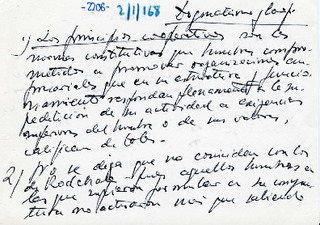 -2206- 2/1/168
1) Los principios cooperativos son las
normas constitutivas que hombres compro-
metidos a promover organizaciones em-
presariales que en su estructura y funcio-
namiento respondan plenamente a la su-
peditación de su actividad a exigencias
superiores del hombre o de sus valores,
califican de tales.
2) No se diga que no coinciden con los
de Rochdale pues aquellos hombres
los que supieron formular en su coyun-
tura no actuaron más que